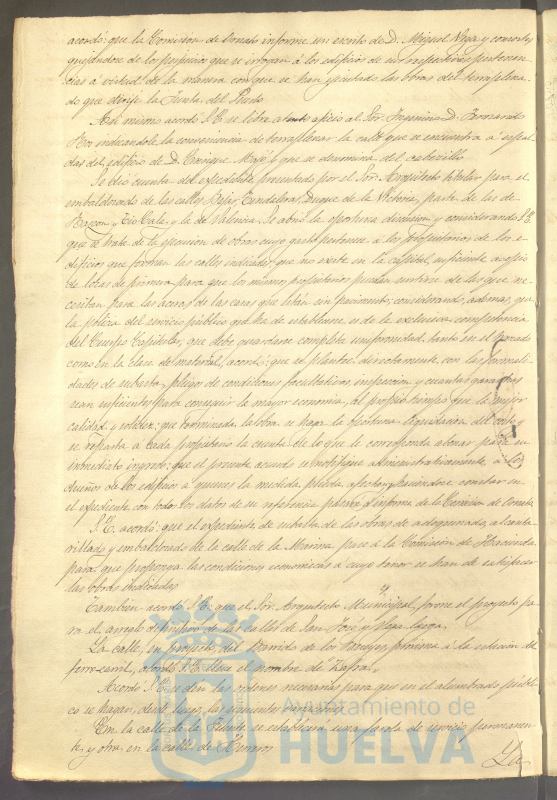 acordó: que la Comision de Ornato informe un escrito de D. Miguel Vega y consortes
quejándose de los perjuicios que se irrogan á los edificios de sus respectivas pertenen
cias á virtud de la manera con que se han ejecutado las obras del terraplena
do que dirije la Junta del Puerto
Así mismo acordó S.E. se libre atento oficio al Sor. Ingeniero D. Fernando
Rco indicandole la conveniencia de terraplenar la calle que se encuentra á espal
das del edificio de D. Enrique y que se denomina del cabecillo
Se dió cuenta del expediente presentado por el Sor. Arquitecto titular para el
embaldosado de las calles Béjar, Tendaleras, Duque de la Victoria, parte de las de
Rascon, y Tio Cala y la de Valencia. Se abrió la oportuna discusion y considerando S.E.
que se trata de la ejecucion de obras cuyo gasto pertenece á los propietarios de los e
dificios que forman las calles indicadas, que no existe en la capital, suficiente acopio
de losas de primera para que los mismos propietarios puedan surtirse de las que ne
cesitan para las aceras de las casas que están sin pavimento; considerando, ademas, que
la policia del servicio público que ha de establecerse es de la exclusiva competencia
del Cuerpo Capitular, que debe guardarse completa uniformidad, tanto en el trazado
como en la clase de material, acordó: que se plantee directamente, con las formali
dades de subasta, pliego de condiciones facultativas, inspeccion y cuantas garantias
sean suficientes para conseguir la mayor economia, al propio tiempo que la mejor
calidad y solidez; que terminada la obra se haga la oportuna liquidacion del costo y
se reparta á cada propietario la cuenta de lo que le corresponda abonar para su
inmediato ingreso; que el presente acuerdo se notifique administrativamente á los
dueños de los edificios á quienes la medida pueda afectar, haciendose constar en
el expediente con todos los datos de su referencia pasen á informe de la Comision de Ornato
S.E. acordó: que el expediente de subasta de las obras de adoquinado, alcanta
rillado y embaldosado de la calle de la Marina pase á la Comision de Hacienda
para que proponga las condiciones economicas á cuyo tenor se han de satisfacer
las obras indicadas
Tambien acordó S.E. que el Sor. Arquitecto Municipal, forme el proyecto pa
ra el arreglo del piso de las calles de San José y Vega larga.
La calle, en proyecto, del Barrido de los próxima á la estacion del
ferro-carril, acordó S.E. lleve el nombre de Zafra.
Acordó S.E. se den las ordenes necesarias para que en el alumbrado públi
co se hagan, desde luego, las siguientes variaciones
En la calle de la Fuente, se establecerá una farola de servicio permanen
te, y otra en la calle de
La
Ayuntamiento de
HUELVA